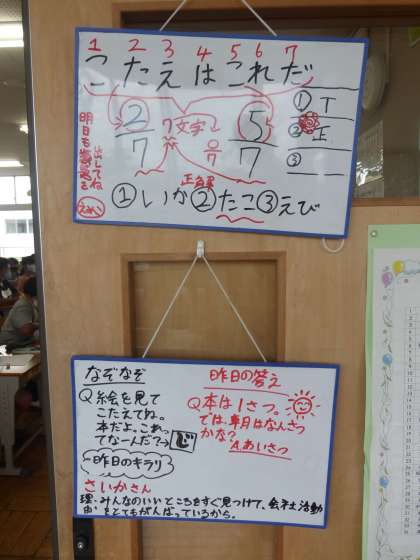 1 2 3 4 5 6 7
こたえはこれだ
2/7
7文字
□/7
5/7
① T
② 正
③
正解
①いか②たこ③えび
出してね
なぞなぞ
Q.絵を見て
こたえてね。
本だよ。これっ
てなーんだ?→じ
昨日の答え
Q.本は1さつ。
では、草月はなんさつ
かな?
A.あいさつ
昨日のキラリ
さいかさん
理由:みんなのいいところをすぐ見つけて、会社活動
をとてもがんばっているから。